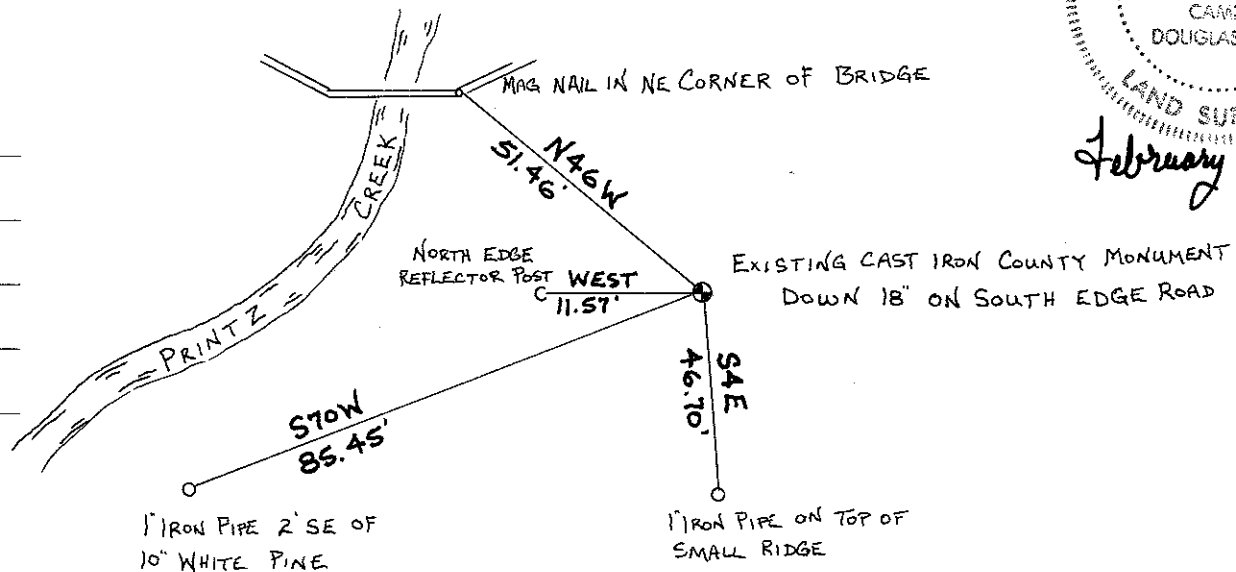 DOUGLAS
LAND SU
February
MAG NAIL IN NE CORNER OF BRIDGE
N46W
51.46'
PRINTZ CREEK
NORTH EDGE
REFLECTOR POST
WEST
11.57'
EXISTING CAST IRON COUNTY MONUMENT
DOWN 18" ON SOUTH EDGE ROAD
S70W
85.45'
S4E
46.70'
1" IRON PIPE 2' SE OF
10" WHITE PINE
1" IRON PIPE ON TOP OF
SMALL RIDGE